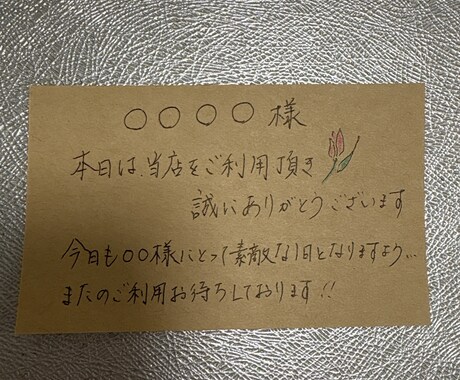 〇〇〇〇様
本日は、当店をご利用頂き
誠にありがとうございます
今日も〇〇様にとって素敵な1日となりますよう…
またのご利用お待ちしております!!